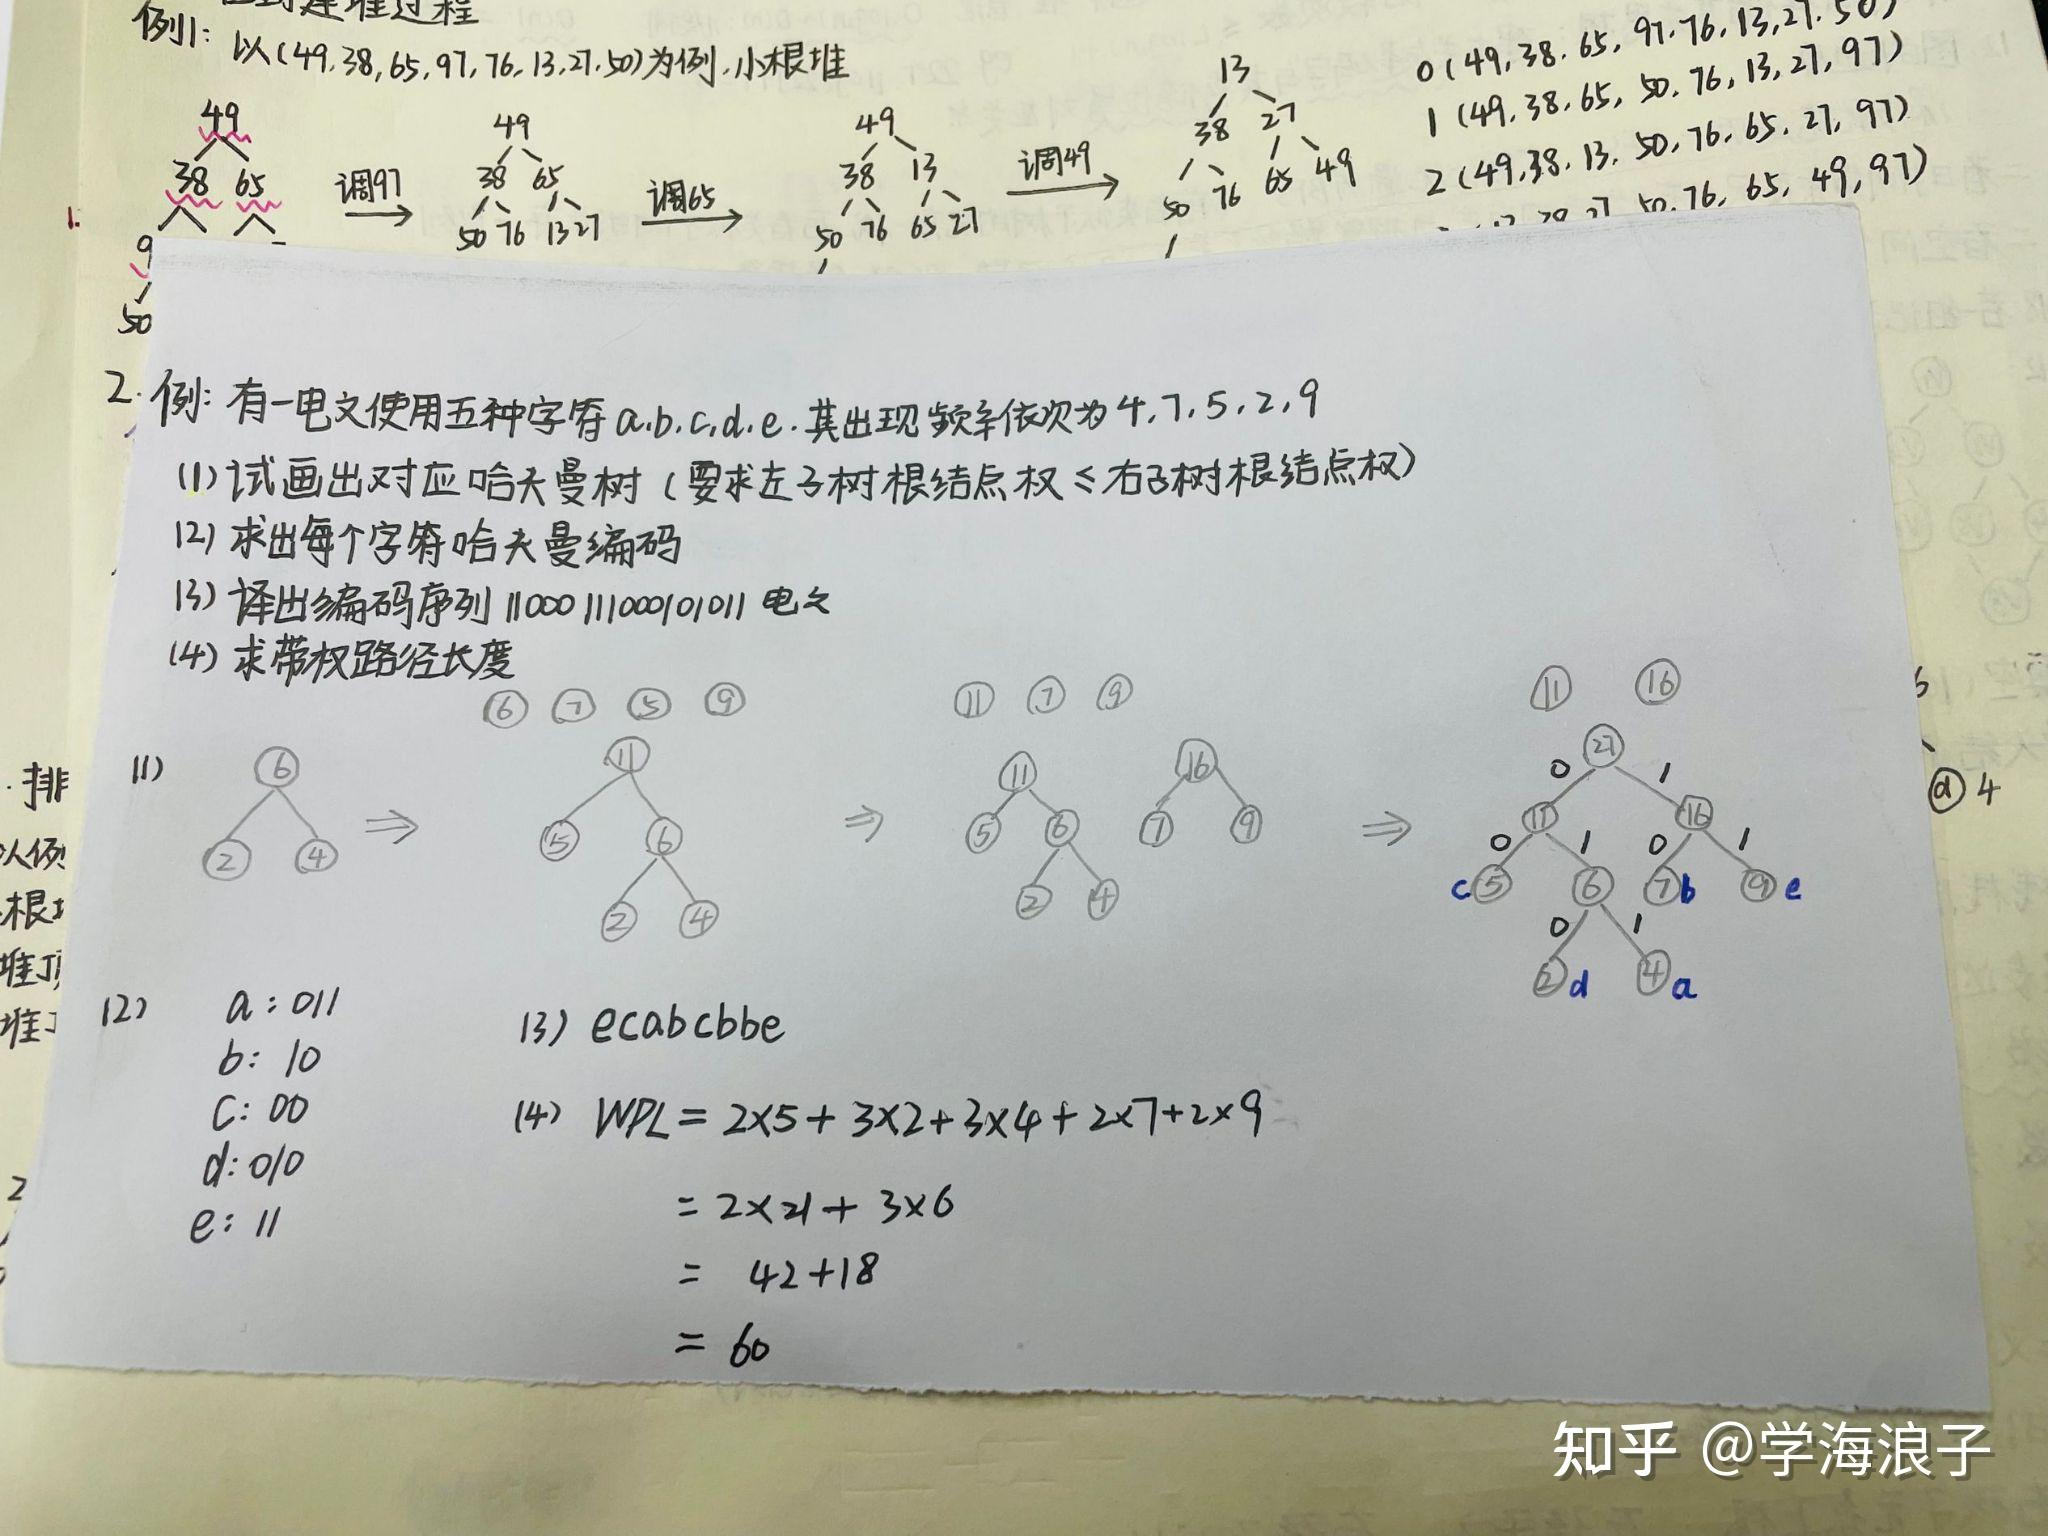 例1: 以(49,38,65,97,76,13,27,50)为例,小根堆
0(49,38,65,97,76,13,27,50)
1(49,38,65,50,76,13,27,97)
2(49,38,13,50,76,65,27,97)
13 38 27 50,76,65,49,97)
49
38 65
9
50
调97
49
38 65
50 76 13 27
调65
49
38 13
50 76 65 27
调49
13
38 27
50 76 65 49
1.
2. 例: 有一电文使用五种字符a,b,c,d,e.其出现频率依次为4,7,5,2,9
(1)试画出对应哈夫曼树(要求左子树根结点权≤右子树根结点权)
(2)求出每个字符哈夫曼编码
(3)译出编码序列11000111000101011电文
(4)求带权路径长度
(1)
6
2 4
⇒
6 7 5 9
11
5 6
2 4
⇒
11 7 9
11 16
5 6 7 9
2 4
⇒
11 16
27
0 1
11 16
0 1 0 1
c5 6 7b 9e
0 1
2d 4a
(2) a:011
b:10
c:00
d:010
e:11
(3) ecabcbbe
(4) WPL=2×5+3×2+3×4+2×7+2×9
=2×21+3×6
= 42+18
= 60
d 4
知乎 @学海浪子